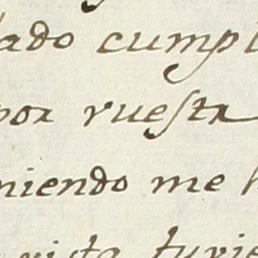 ado cumpl
por vuestr
niendo me h
vista tuvie